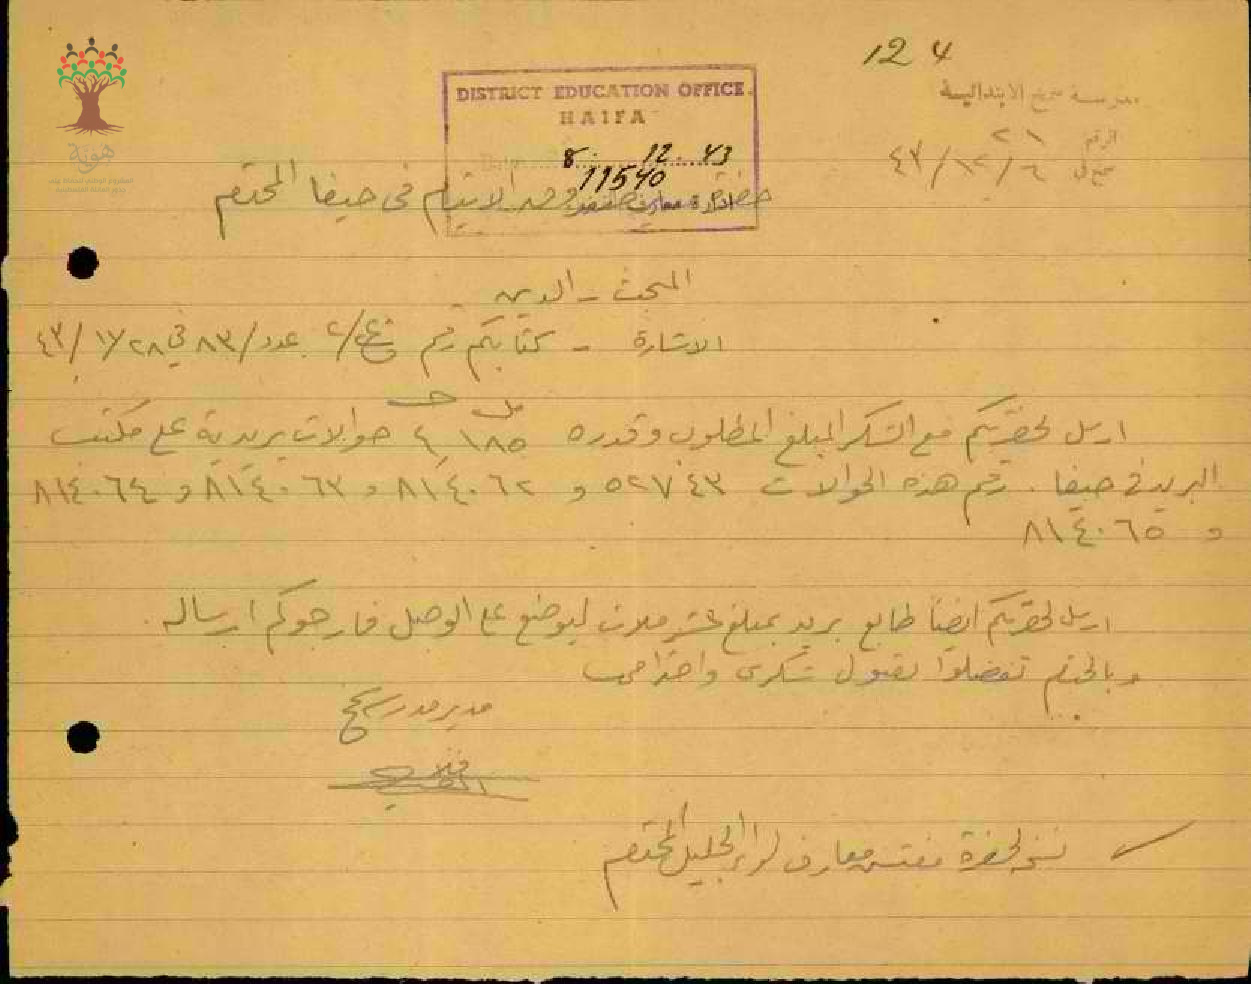 12 4
مدرسة سمخ الابتدائية
الرقم ٢١
سمخ في ٦/١٢/٤٣
DISTRICT EDUCATION OFFICE
HAIFA
Date 8. 12. 43
11540
حضرة الايتام في حيفا المحترم
هوية
المبحث - الدين
الاشارة - كتابكم رقم عدد/٨٣ في ٢٨/١١/٤٣
ارسل لحضرتكم مع الشكر المبلغ المطلوب وقدره ٤,١٨٥ حوالات بريدية على مكتب
البريد في حيفا. رقم هذه الحوالات ٥٢٧٠٤٣ و ٨١٤٠٦٢ و ٨١٤٠٦٣ و ٨١٤٠٦٤
و ٨١٤٠٦٥
ارسل لحضرتكم ايضا طابع بريد بمبلغ عشر ملات ليوضع على الوصل فارجوكم ارساله.
وبالختام تفضلوا بقبول شكري واحترامي
مدير مدرسة سمخ
نسخة لحضرة مفتش معارف لواء الجليل المحترم